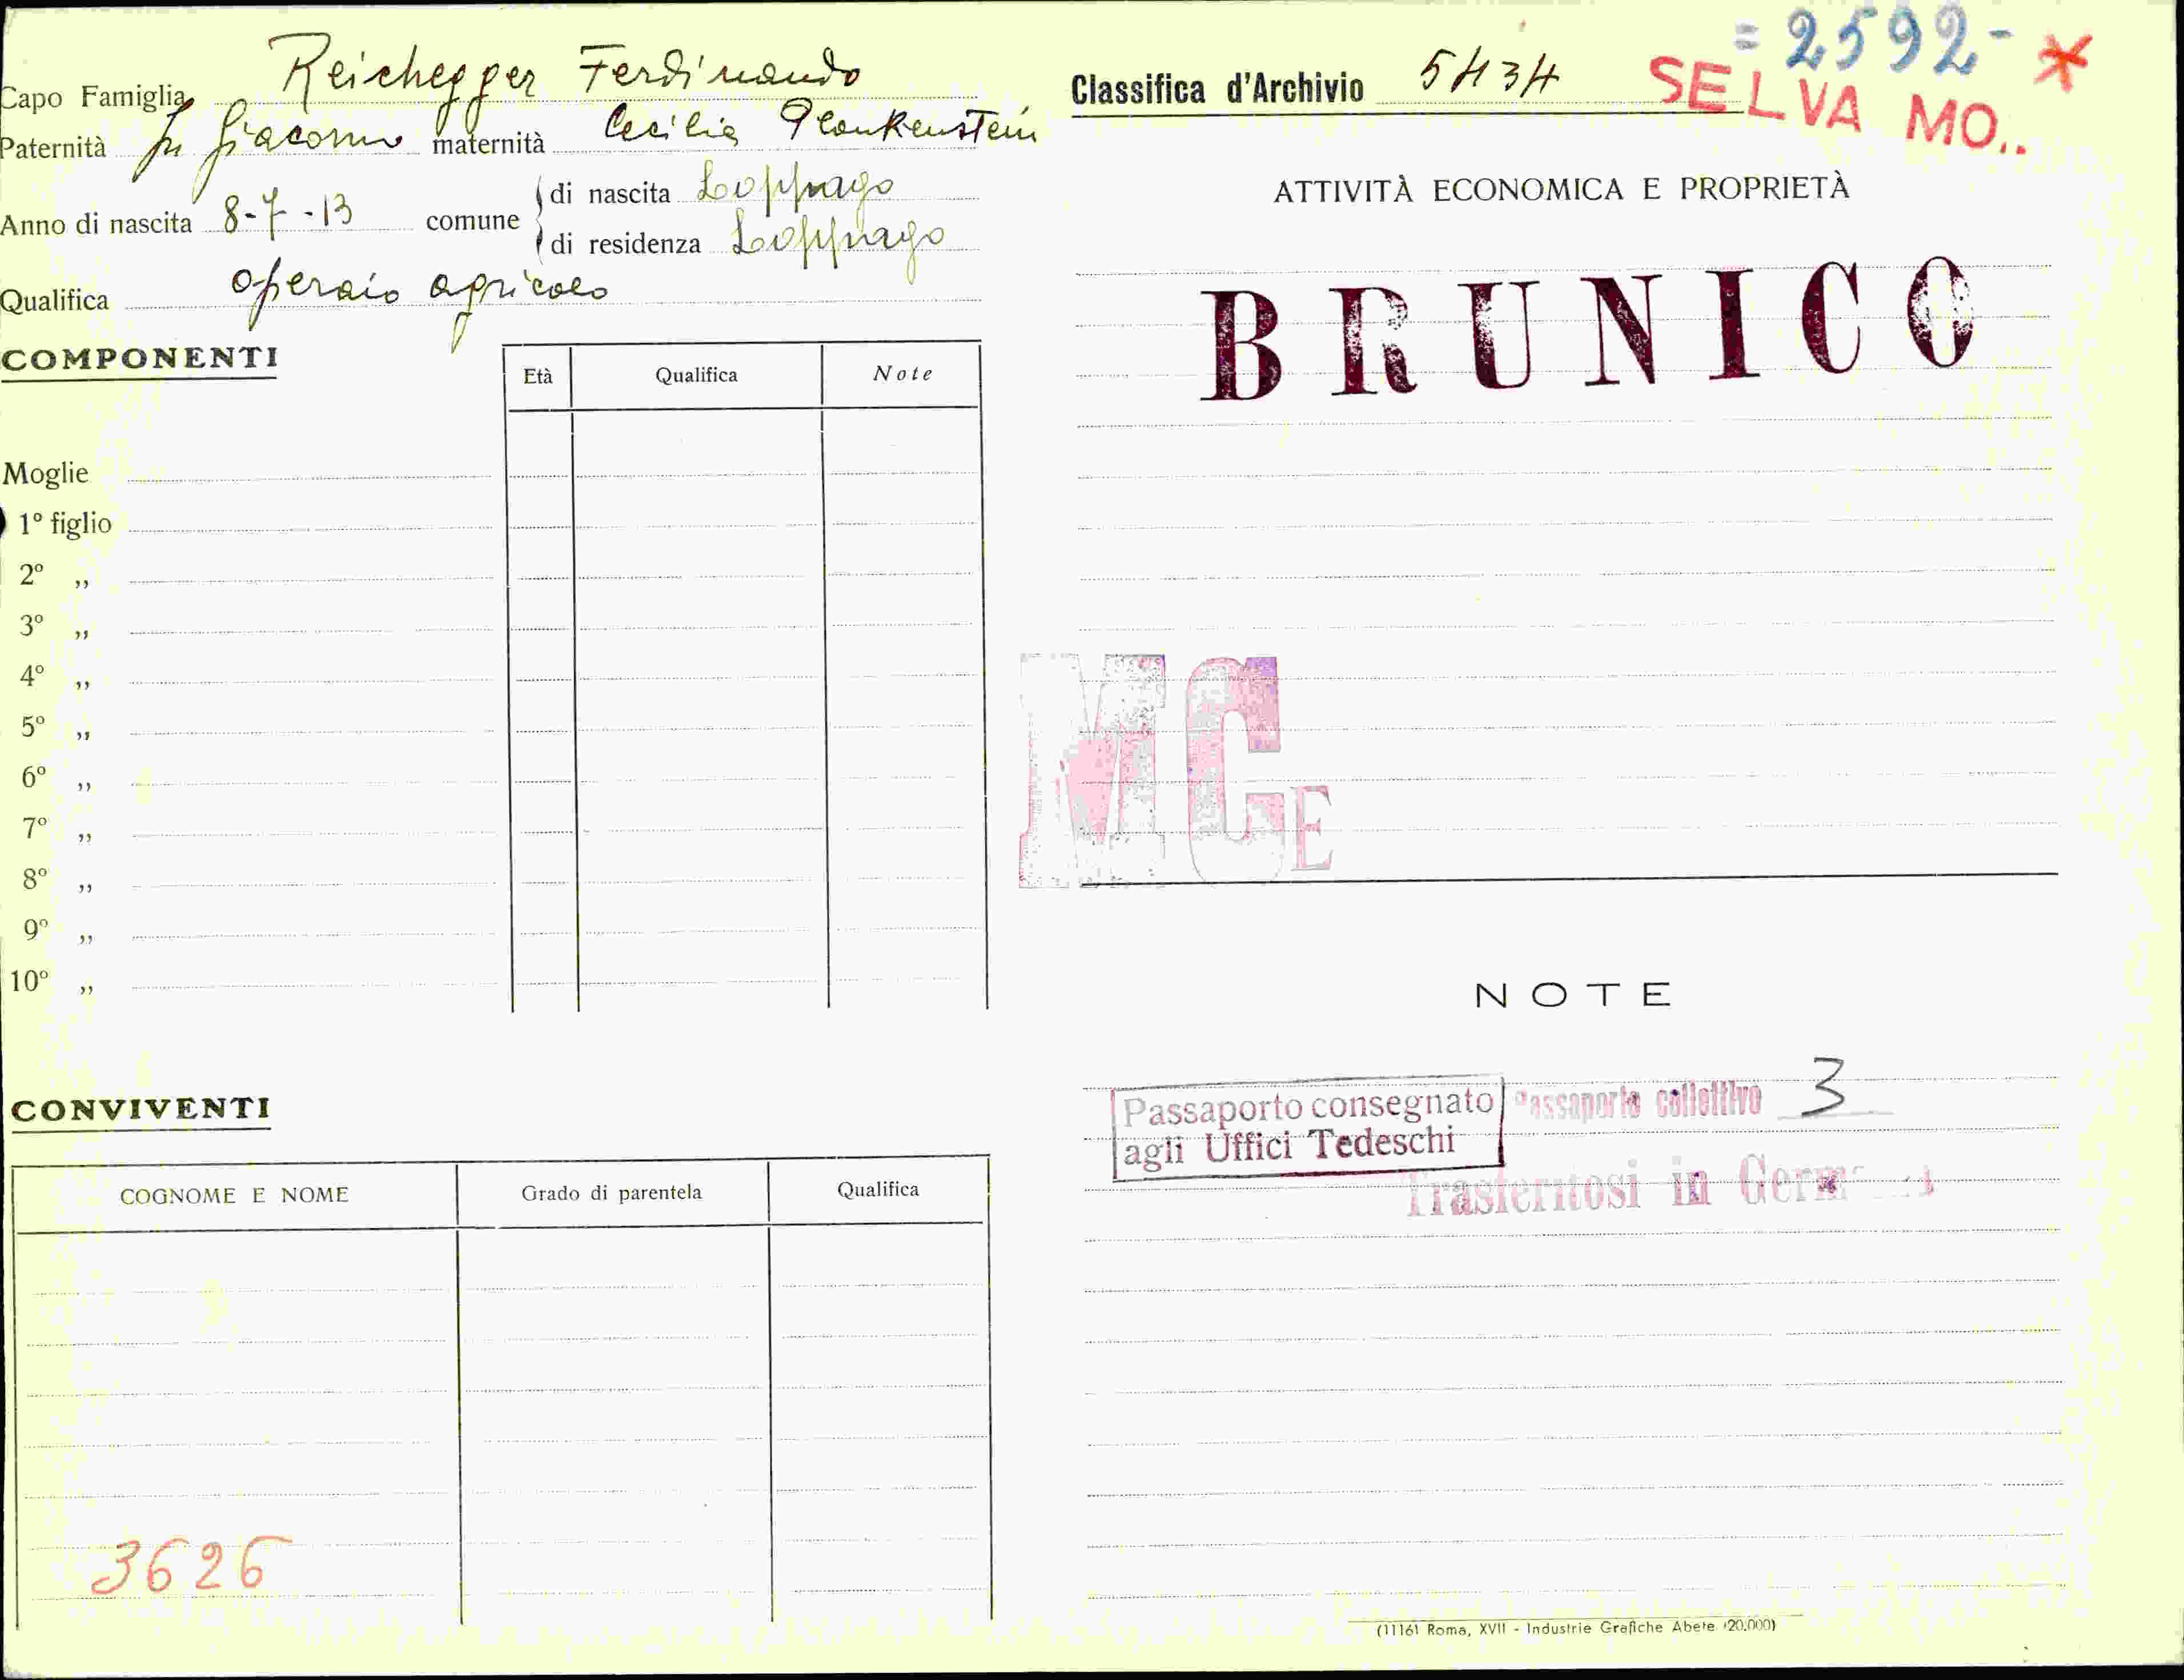 Capo Famiglia Reichegger Ferdinando
Paternità fu Giacomo maternità Cecilia Plankenstein
Anno di nascita 8-7-13 comune
di nascita Loppago
di residenza Loppago
Qualifica operaio agricolo
COMPONENTI
Età Qualifica Note
Moglie
1º figlio
2º ,,
3º ,,
4º ,,
5º ,,
6º ,,
7º ,,
8º ,,
9º ,,
10º ,,
CONVIVENTI
COGNOME E NOME Grado di parentela Qualifica
3626
= 2592- *
Classifica d'Archivio 5434
SELVA MO..
ATTIVITÀ ECONOMICA E PROPRIETÀ
BRUNICO
MCE
NOTE
Passaporto consegnato
agli Uffici Tedeschi
Passaporto collettivo 3
Trasferitosi in Germania
(11161 Roma, XVII - Industrie Grafiche Abete (20.000)